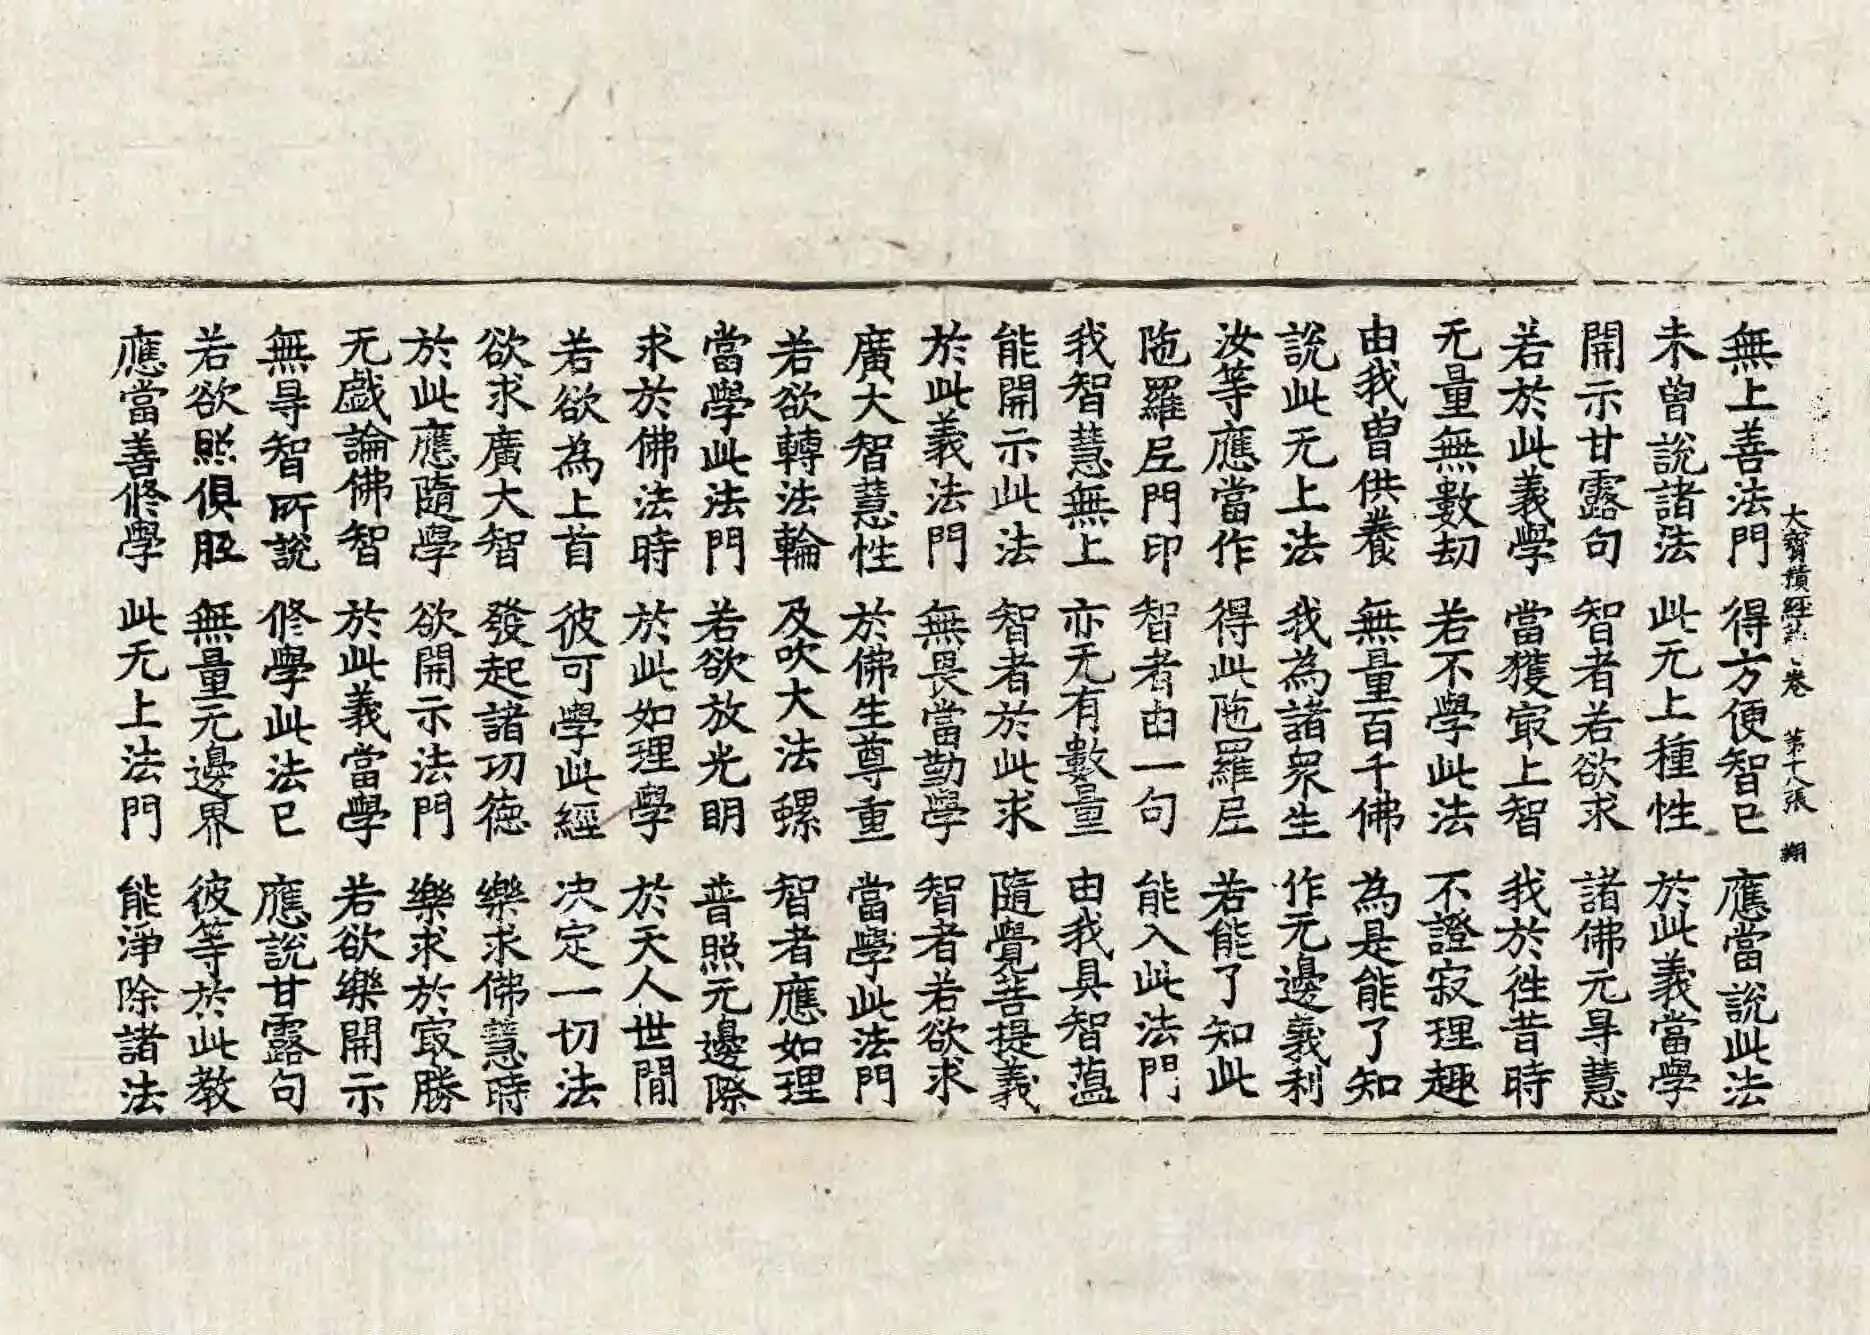 大寶積經 卷 第十八張 翔
無上善法門 得方便智已 應當說此法
未曾說諸法 此无上種性 於此義當學
開示甘露句 智者若欲求 諸佛无㝵慧
若於此義學 當獲㝡上智 我於徃昔時
无量無數劫 若不學此法 不證寂理趣
由我曾供養 無量百千佛 為是能了知
說此无上法 我為諸衆生 作无邊義利
汝等應當作 得此陁羅尼 若能了知此
陁羅尼門印 智者由一句 能入此法門
我智慧無上 亦无有數量 由我具智藴
能開示此法 智者於此求 隨覺菩提義
於此義法門 無畏當勤學 智者若欲求
廣大智慧性 於佛生尊重 當學此法門
若欲轉法輪 及吹大法螺 智者應如理
當學此法門 若欲放光明 普照无邊際
求於佛法時 於此如理學 於天人世間
若欲為上首 彼可學此經 决定一切法
欲求廣大智 發起諸功德 樂求佛慧時
於此應隨學 欲開示法門 樂求於㝡勝
无戲論佛智 於此義當學 若欲樂開示
無㝵智所說 修學此法已 應說甘露句
若欲照俱胝 無量无邊界 彼等於此教
應當善修學 此无上法門 能淨除諸法